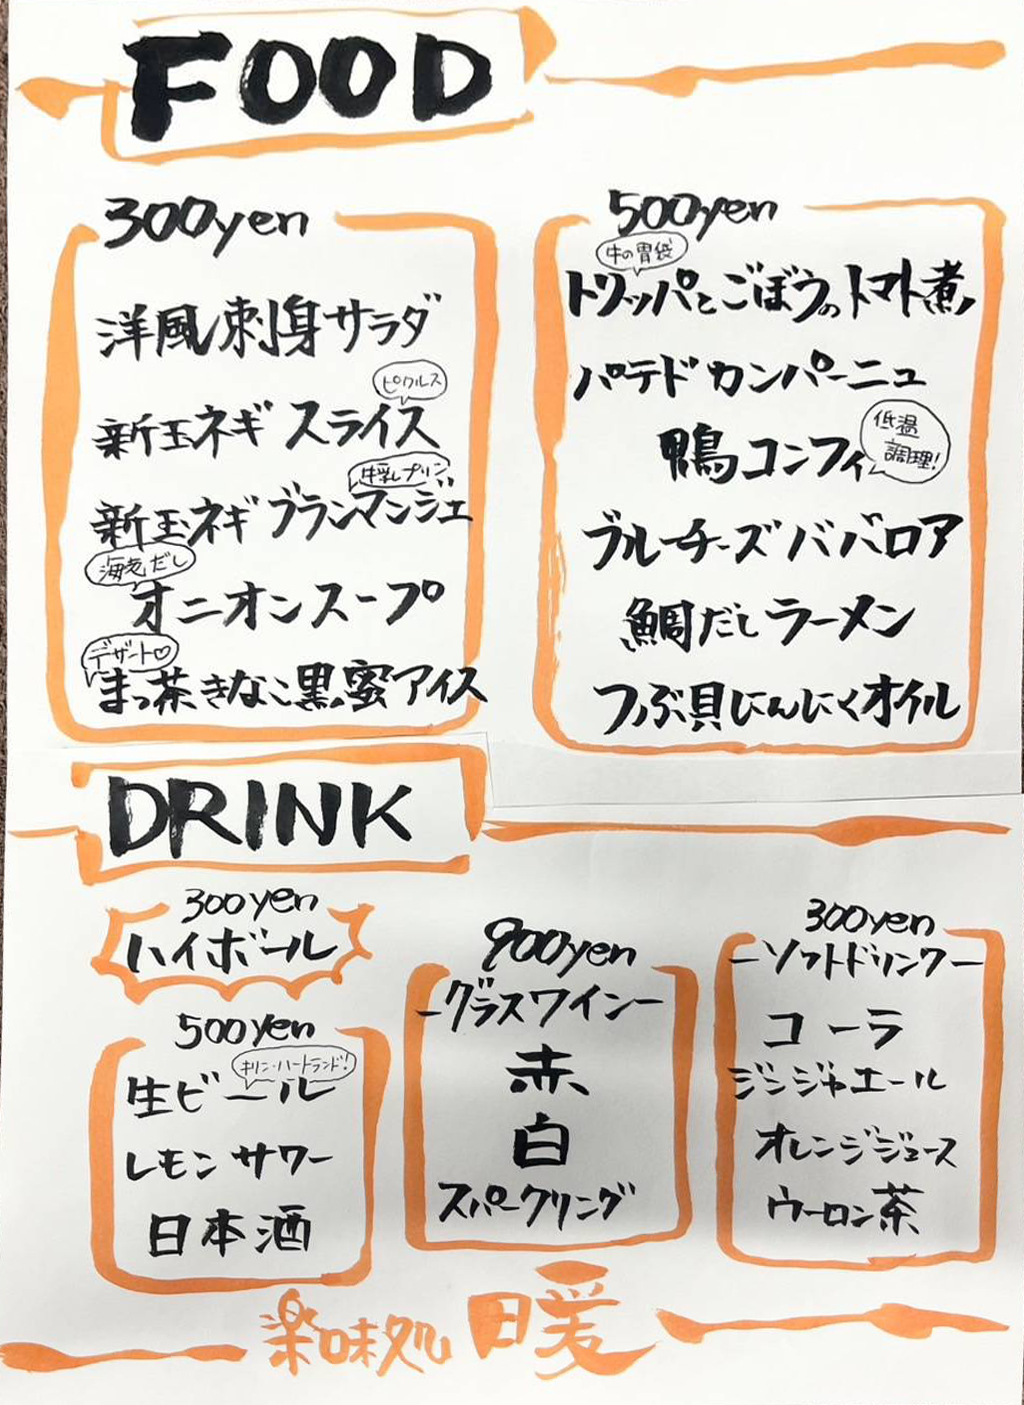 FOOD
300yen
洋風刺身サラダ
ピクルス
新玉ネギスライス
牛乳プリン
新玉ネギブランマンジェ
海老だし
オニオンスープ
デザート♡
まっ茶きなこ黒蜜アイス
500yen
牛の胃袋
トリッパとごぼうのトマト煮
パテドカンパーニュ
鴨コンフィ
低温
調理!
ブルーチーズババロア
鯛だしラーメン
つぶ貝にんにくオイル
DRINK
300yen
ハイボール
500yen
キリン・ハートランド!
生ビール
レモンサワー
日本酒
900yen
ーグラスワインー
赤
白
スパークリング
300yen
ーソフトドリンクー
コーラ
ジンジャエール
オレンジジュース
ウーロン茶
楽味処 暖